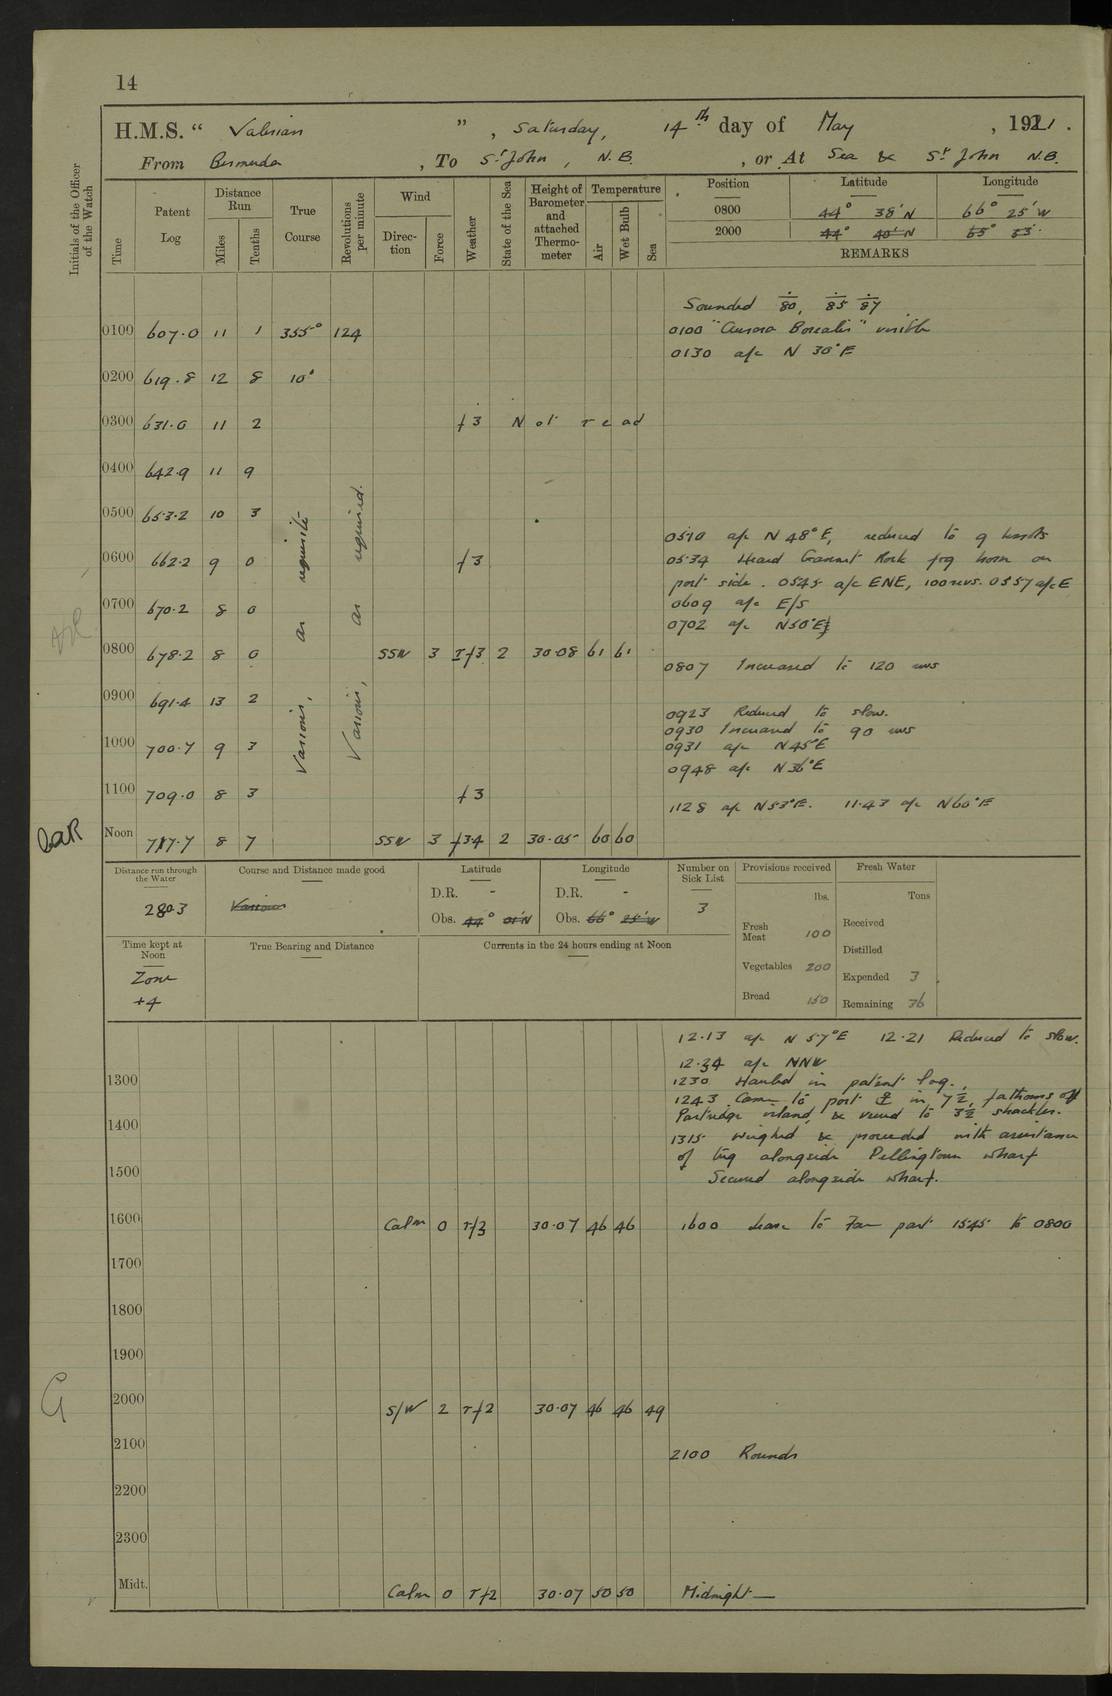 14
H.M.S. “ Valerian ” , Saturday, 14th day of May , 1921 .
From Bermuda , To St John , N.B. , or At Sea & St John N.B.
Initials of the Officer of the Watch
Time
Patent Log
Distance Run
Miles
Tenths
True Course
Revolutions per minute
Wind
Direction
Force
Weather
State of the Sea
Height of Barometer and attached Thermometer
Temperature
Air
Wet Bulb
Sea
Position Latitude Longitude
0800 44° 38' N 66° 25' W
2000 44° 40' N 65° 53'
REMARKS
Sounded 80, 85 87
0100 607.0 11 1 355° 124 0100 "Aurora Borealis" visible
0130 a/c N 30°E
0200 619.8 12 8 10°
0300 631.0 11 2 f 3 Not read
0400 642.9 11 9
0500 653.2 10 3
Various, as requisite
Various, as required.
0510 a/c N 48°E, reduced to 9 knots
0600 662.2 9 0 f 3 0534 Heard Gannet Rock fog horn on
port side . 0545 a/c ENE, 100 revs. 0557 a/c E
0700 670.2 8 0 0609 a/c E/S
0702 a/c N50°E
0800 678.2 8 0 SSW 3 rf3 2 30.08 61 61
0807 Increased to 120 revs
0900 691.4 13 2
0923 Reduced to slow.
0930 Increased to 90 revs
1000 700.7 9 3 0931 a/c N45°E
0948 a/c N36°E
1100 709.0 8 3 f 3
1128 a/c N53°E. 11.43 a/c N60°E
Noon 717.7 8 7 SSW 3 f34 2 30.05 60 60
Distance run through the Water
2803
Course and Distance made good
Various
Latitude
D.R. -
Obs. 44° 01' N
Longitude
D.R. -
Obs. 66° 25' W
Number on Sick List
3
Provisions received
lbs.
Fresh Meat 100
Vegetables 200
Bread 150
Fresh Water
Tons
Received
Distilled
Expended 3
Remaining 36
Time kept at Noon
Zone
+4
True Bearing and Distance
Currents in the 24 hours ending at Noon
12.13 a/c N 57°E 12.21 Reduced to slow.
12.24 a/c NNW
1300 1230 Hauled in patent log.
1243 Came to port in 7½ fathoms off
1400 Partridge island, & veered to 3½ shackles.
1315 Weighed & proceeded with assistance
of tug alongside Pettingtown wharf
1500 Secured alongside wharf.
1600 Calm 0 rf3 30.07 46 46 1600 Leave to For part 1545 to 0800
1700
1800
1900
2000 S/W 2 rf2 30.07 46 46 49
2100 2100 Rounds
2200
2300
Midt. Calm 0 rf2 30.07 50 50 Midnight